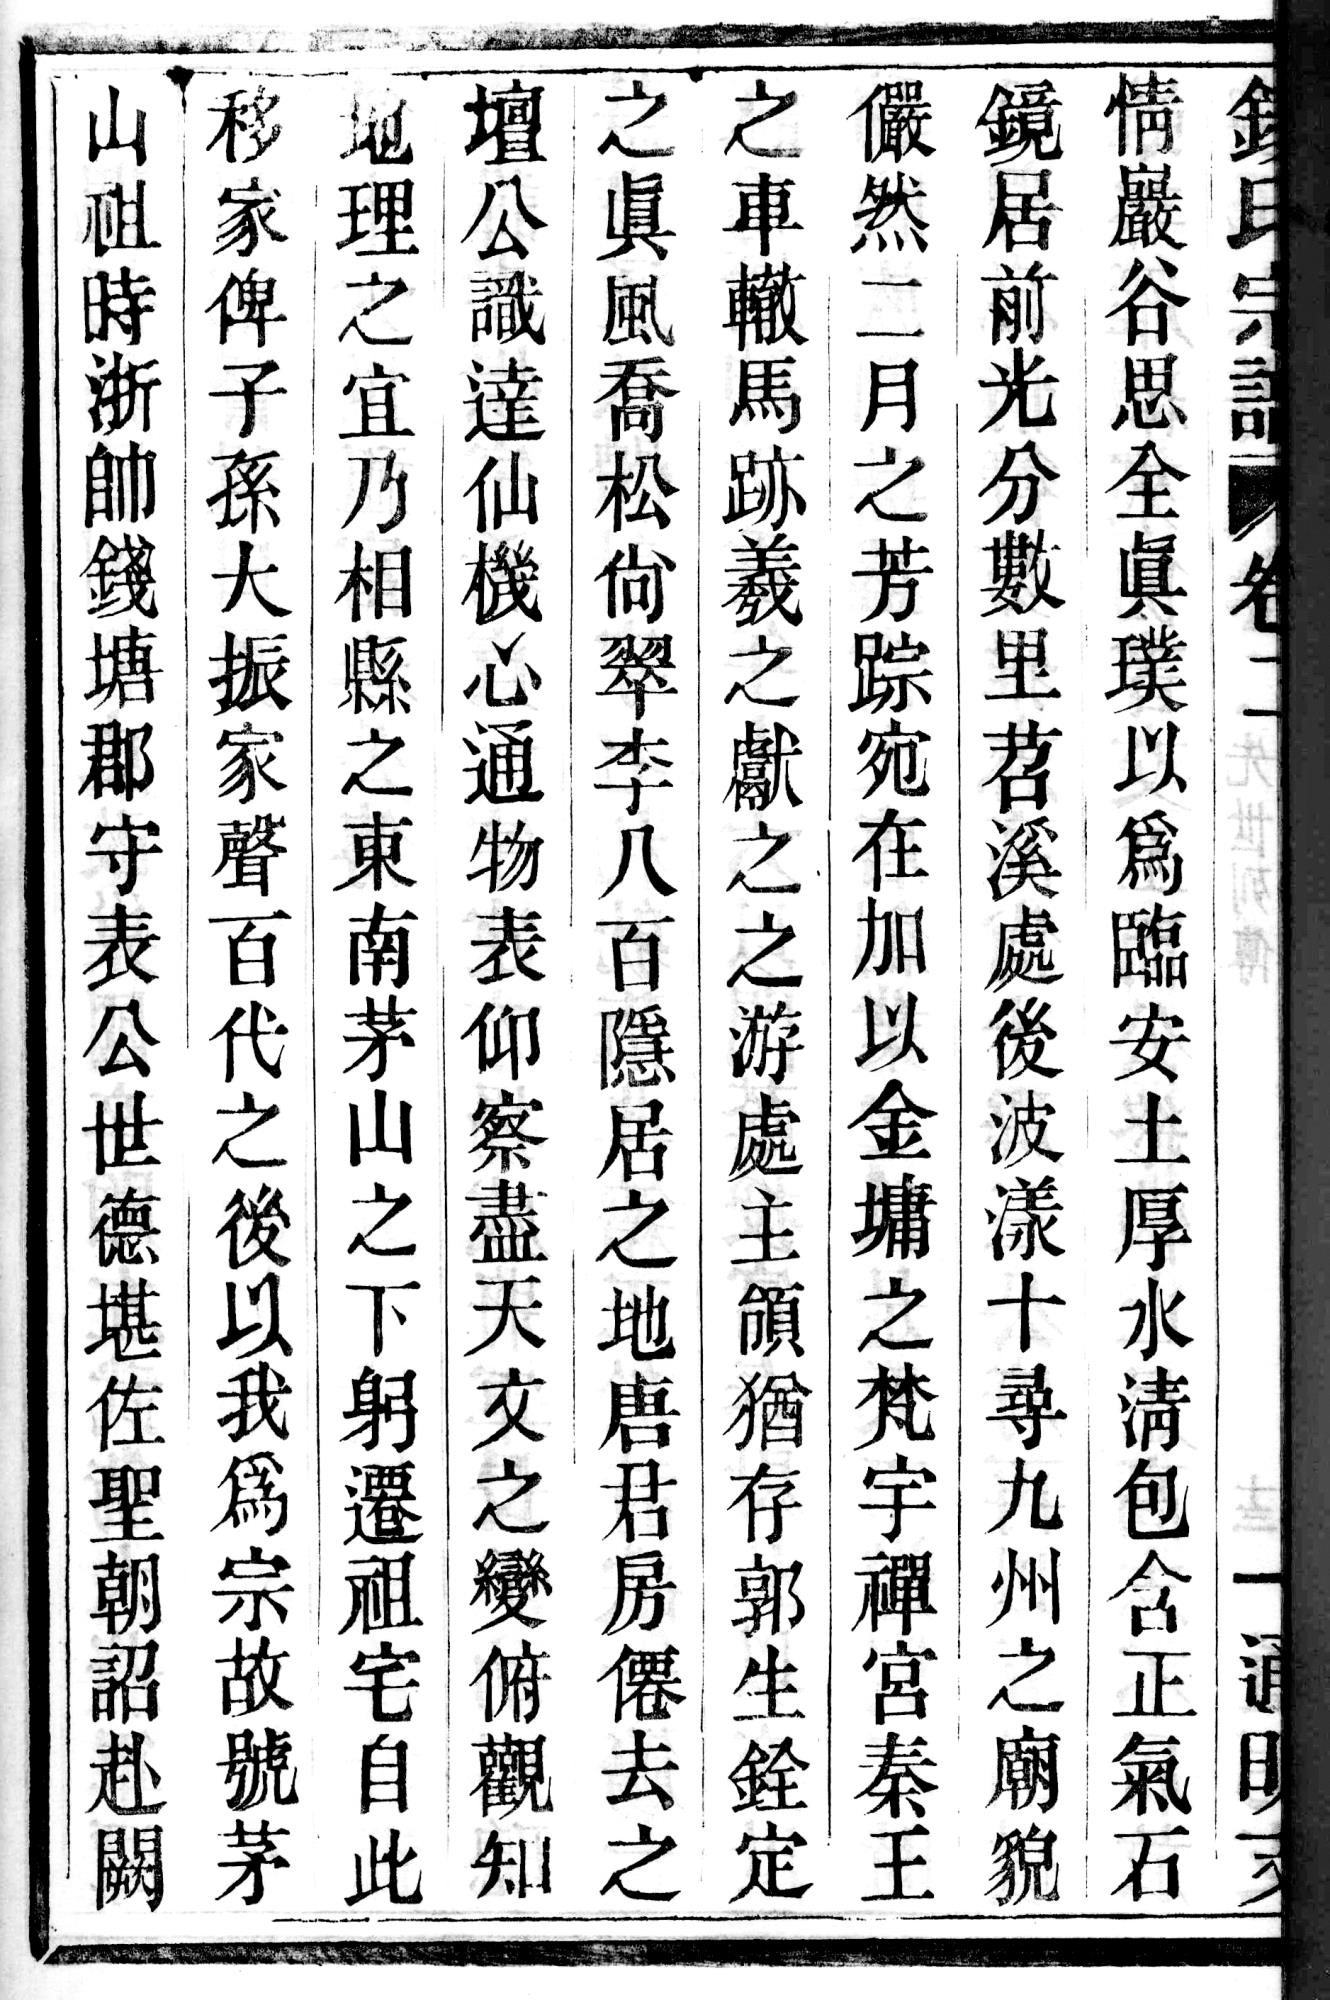 錢氏宗譜 卷二 先世列傳 十三 一
情巖谷思全眞璞以爲臨安土厚水淸包含正氣石
鏡居前光分數里苕溪處後波漾十尋九州之廟貌
儼然二月之芳踪宛在加以金墉之梵宇禪宮秦王
之車轍馬跡羲之獻之之游處主領猶存郭生銓定
之眞風喬松尙翠李八百隱居之地唐君房僊去之
壇公識達仙機心通物表仰察盡天文之變俯觀知
地理之宜乃相縣之東南茅山之下躬遷祖宅自此
移家俾子孫大振家聲百代之後以我爲宗故號茅
山祖時浙帥錢塘郡守表公世德堪佐聖朝詔赴闕